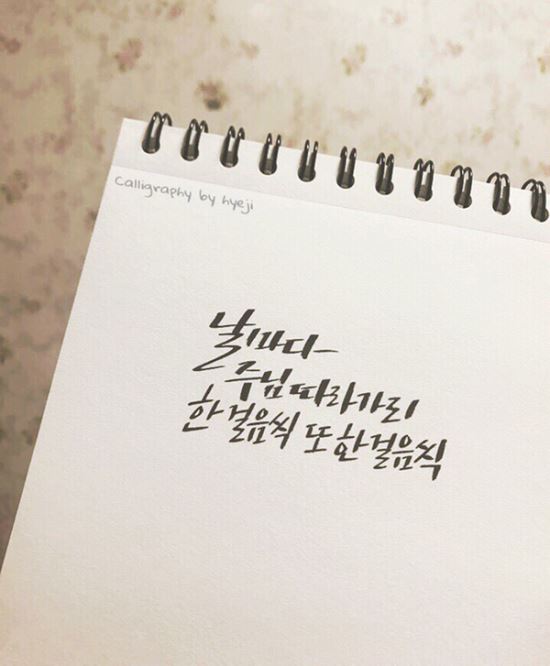 Calligraphy by hyeji
날마다
주님 따라가리
한 걸음씩 또 한 걸음씩